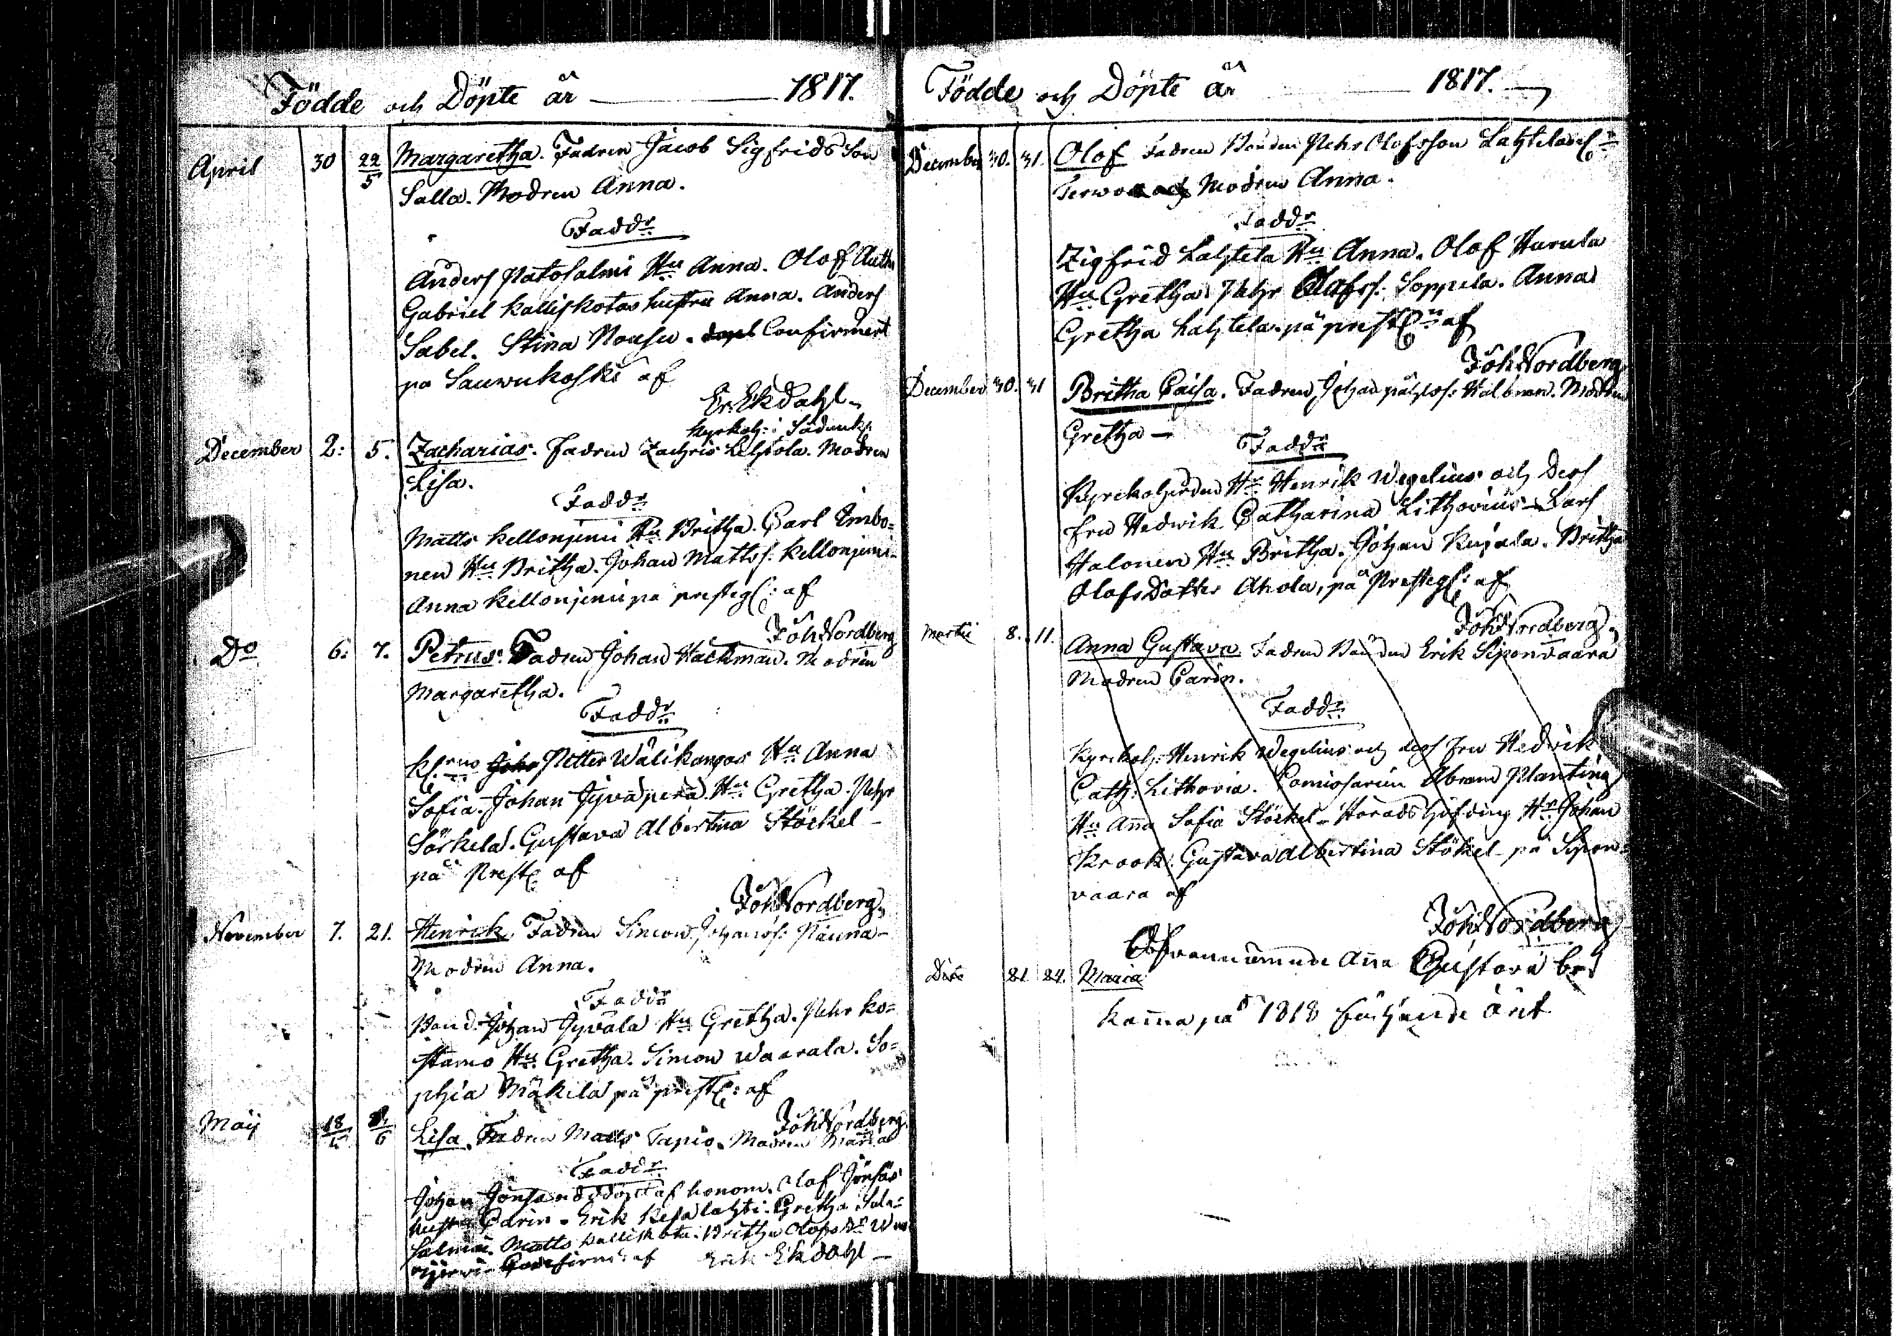 Födde och Döpte år 1817.
April 30 22/5 Margaretha. Fadren Jacob Sigfrids Son
Salla. Modren Anna.
Faddr
Anders Patosalmi Hu Anna. Olof
Gabriel Kalliskotas hustru Anna. Anders
Sabel. Stina Nousu. Confirmert
på Sauwukoski af
Er. Ekdahl
Kyrkoh: i Sodank:
December 2: 5. Zacharias. Fadren Zachris Lehtola. Modren
Lisa.
Faddr
Matts Kellonjemi Hu Britha. Carl Imbo=
nen Hu Britha. Johan Mattss: Kellonjemi
Anna Kellonjemi på presteg: af
Joh Nordberg
Do 6: 7. Petrus. Fadren Johan Hackman. Modren
Margaretha.
Faddr
Petter Wälikangas Hu Anna
Sofia. Johan Jyväperä. Hu Gretha. Pehr
Särkelä. Gustava Albertina Stöckel
på Prest: af
Joh Nordberg
November 7. 21. Henrick. Fadren Simon Johanss: Nauna
Modren Anna.
Faddr
Bond. Johan Jyvälä Hu Gretha. Pehr Ko=
stamo Hu Gretha. Simon Waarala. So=
phia Mäkilä på prest: af
Joh Nordberg
Maij 18/5 Lisa. Fadren Matts Tapio. Modren Maria
Faddr
Johan Jönsa nöddöpt af honom. Olof Jönsas
hustru Carin. Erik Kesälahti. Gretha Sula=
salmi. Matts Kalliskota. Britha Olofs Dr
Confirm: af Erik Ekdahl
Födde och Döpte år 1817.
December 30. 31. Olof Fadren Bonden Pehr Olofsson Lahtela
Modren Anna.
Faddr
Zigfrid Lahtela Hu Anna. Olof Harula
Hu Gretha. Pehr Olofss: Soppela. Anna
Gretha Lahtela. på prest: af
Joh Nordberg
December 30. 31 Britha Caisa. Fadren Johan Halonen. Modren
Gretha
Faddr
Kyrkoherden Hr Henrik Wegelius och Dess
fru Hedwik Catharina Lithovius. Lars
Halonen Hu Britha. Johan Kujala. Britha
Olofs Dotter Ahola, på Presteg: af
Joh Nordberg
Martii 8. 11. Anna Gustava Fadren Bonden Erik Siponvaara
Modren Carin.
Faddr
Kyrkoh: Henrik Wegelius och dess fru Hedvik
Cath: Lithovia. Comiosarien Abram Planting
Hu Aña Sofia Stöckel Häradshöfding Hr Johan
Krook. Gustava Albertina Stökel på Sipon=
vaara af
Joh Nordberg
Ofvannämnde Aña Gustava bör
Dito 21 24. Maria
kom̃a på 1818 följande året